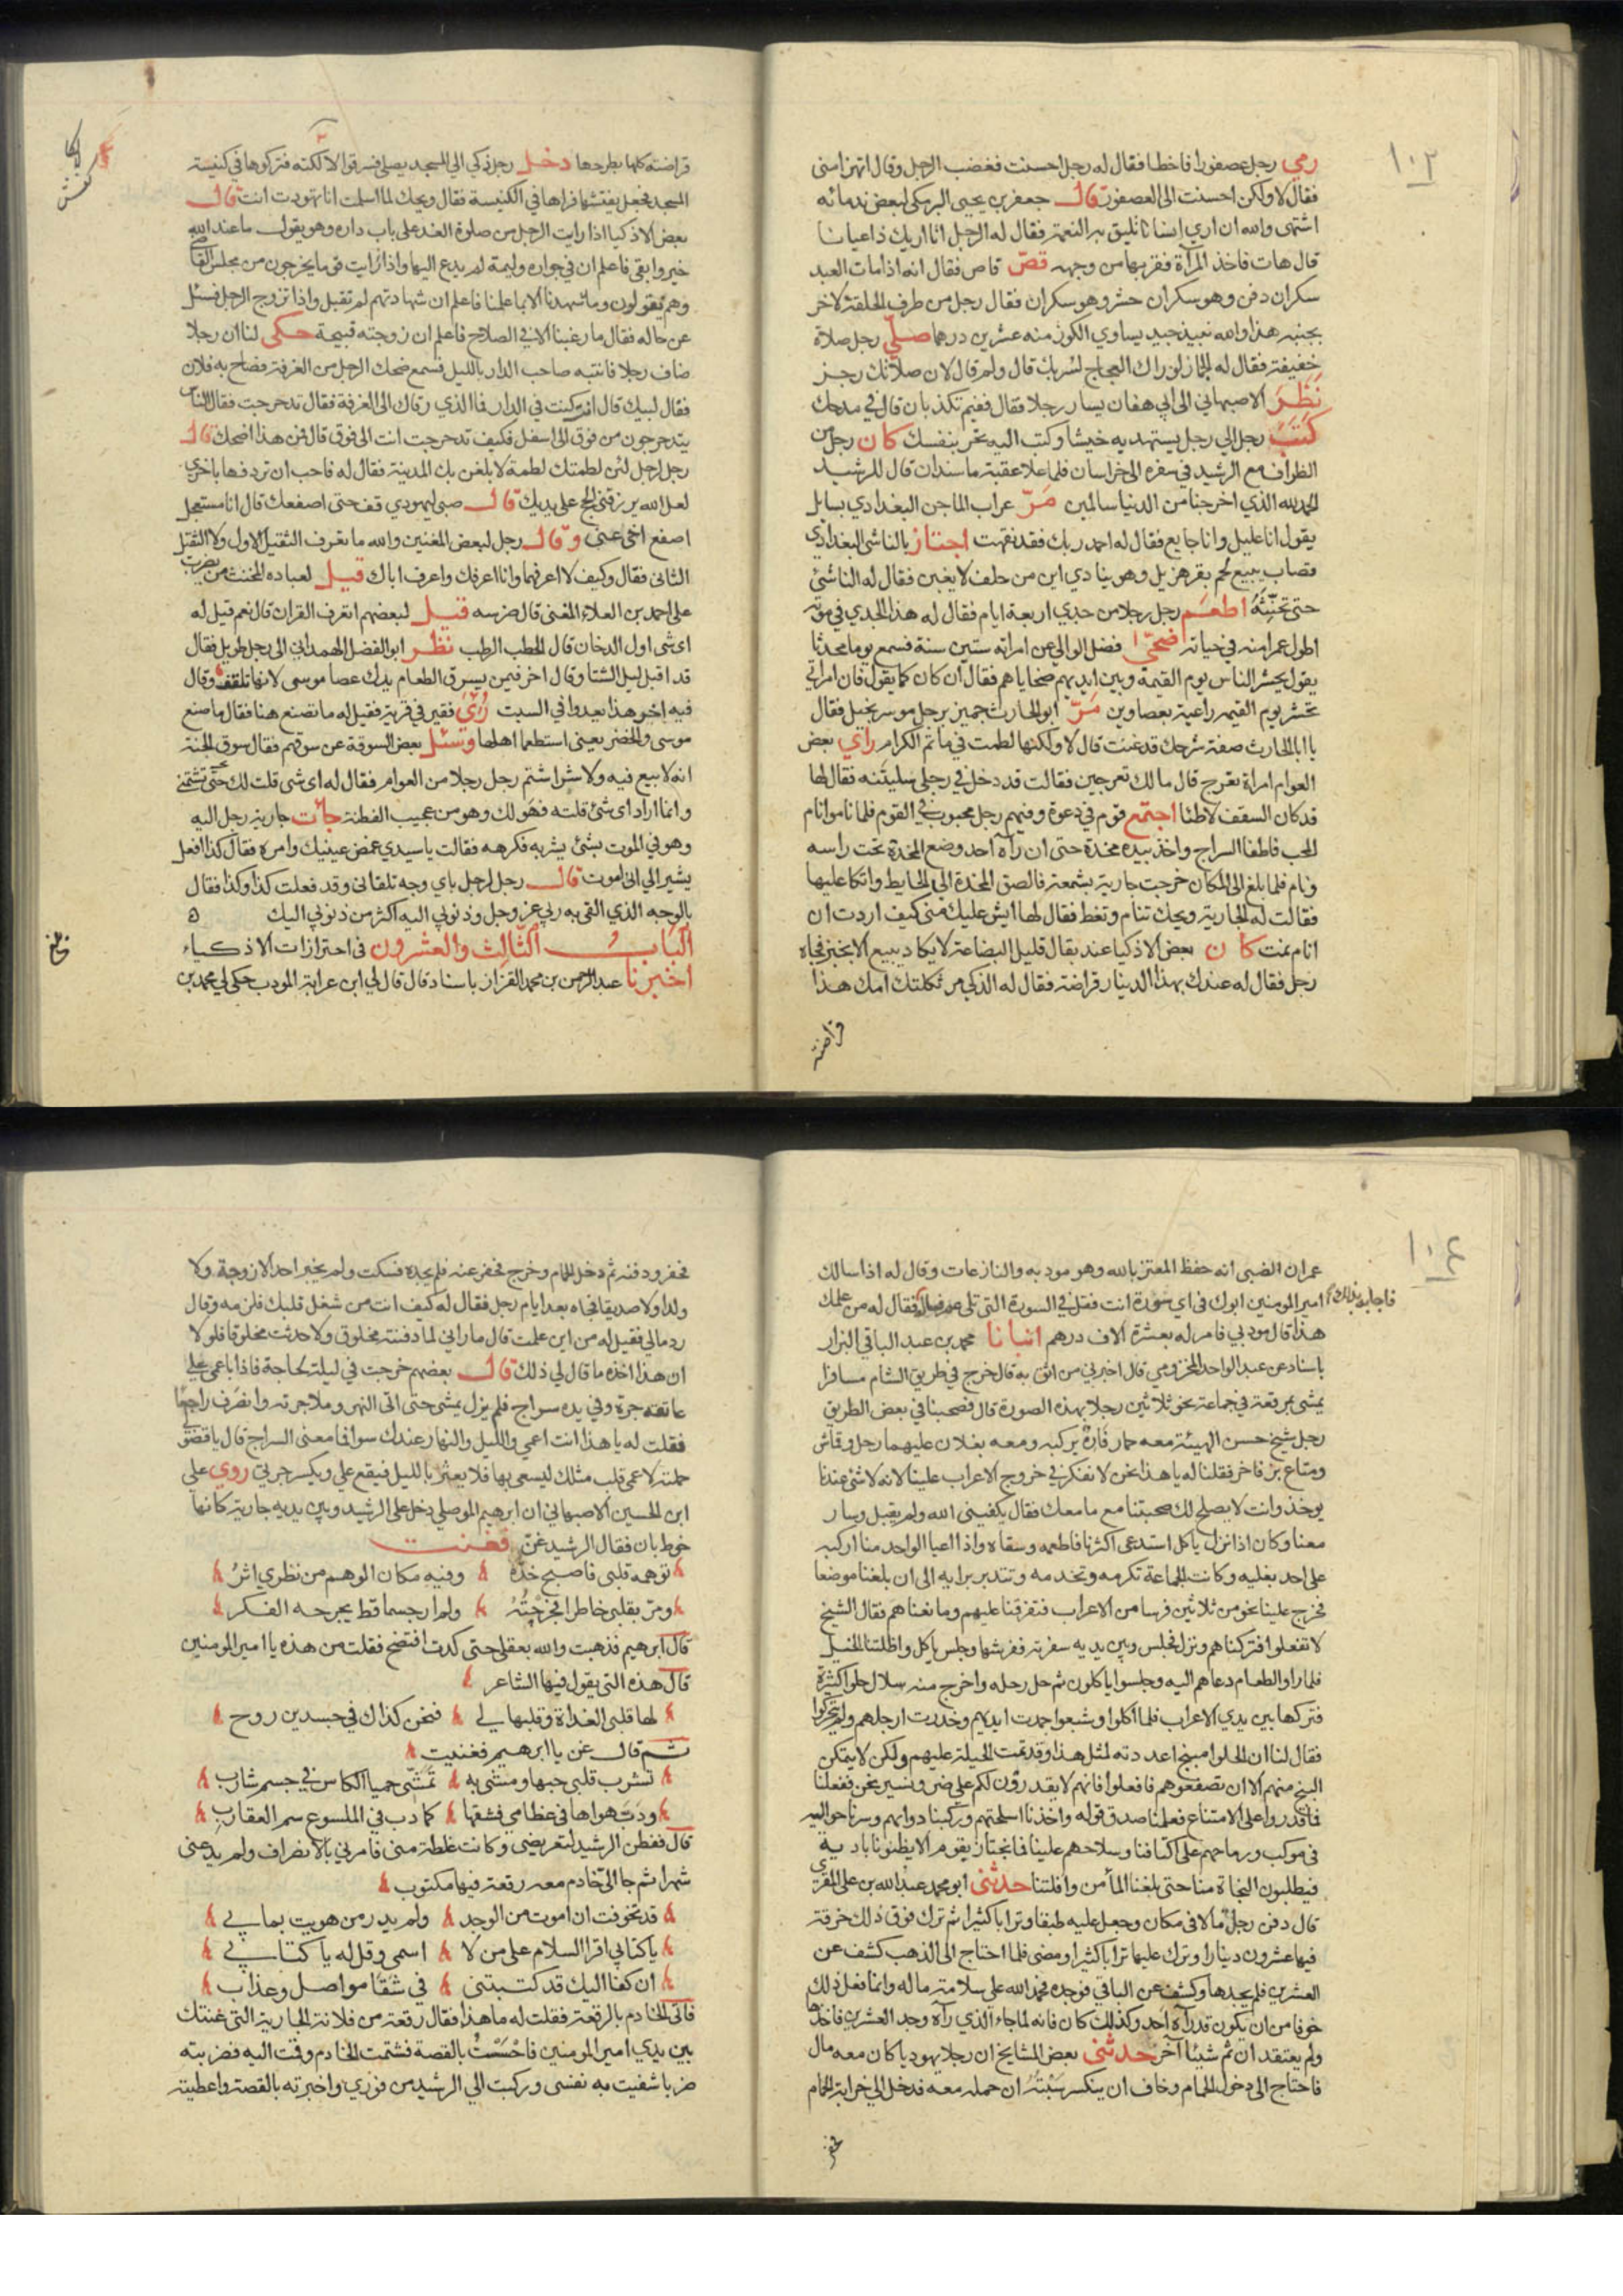 ١٠٢
رمي رجل عصفورا فاخطا فقال له رجل احسنت فغضب الرجل وقال اتهزا مني
فقال لا ولكن احسنت الى العصفور قال جعفر بن يحيى البرمكي لبعض ندمائه
اشتهى والله ان اري انسانا تليق به النعمة فقال له الرجل انا اريك ذا عيانا
قال هات فاخذ المرآة فقربها من وجهه قصّ قاص فقال انه اذا مات العبد
سكران دفن وهو سكران حشر وهو سكران فقال رجل من طرف الحلقة لاخر
بجنبه هذا والله نبيذ جيد يساوي الكوز منه عشرين درهما صلّي رجل صلاة
خفيفة فقال له الجماز لو راك العجاج لسر بك قال ولم قال لان صلاتك رجز
نَظَرَ الاصبهاني الى ابي هفان يسار رجلا فقال فيم تكذبان قال في مدحك
كَتَبَ رجل الي رجل يستهديه خيشا وكتب اليه تخر بنفسك كان رجل من
الظراف مع الرشيد في سفره الى خراسان فلما علا عقبة ماسندان قال للرشيد
الحمد لله الذي اخرجنا من الدنيا سالمين مَرّ عراب الماجن البغدادي بسايل
يقول انا عليل وانا جايع فقال له احمد ربك فقد نقهت اجتاز بالناشي البغدادي
قصاب يبيع لحم بقر هزيل وهو ينادي اين من حلف لا يغبن فقال له الناشئ
حتى تحنّثه اطعَم رجل رجلا من جدي اربعة ايام فقال له هذا الجدي في موته
اطول عمرا منه في حياته اضحّى فضل الوالي عن امراته ستين سنة فسمع يوما محدثا
يقول يحشر الناس يوم القيمة وبين ايديهم ضحاياهم فقال ان كان كما يقول فان امراتي
تحشر يوم القيمه راعية بعصاوين مَرّ ابو الحارث جمين برجل موسر بخيل فقال
يا ابا الحارث صفة شرجك قد عتت قال لا ولكنها لطمت في ماتم الكرام راي بعض
العوام امراة تعرج قال ما لك تعرجين فقالت قد دخل في رجلي سليتنه فقال لها
قد كان السقف لاطئا اجتمع قوم في دعوة وفيهم رجل محبوب في القوم فلما ناموا نام
الحب فاطفا السراج واخذ بيده مخدة حتى ان رآه احد وضع المخدة تحت راسه
ونام فلما بلغ الى المكان خرجت جارية بشمعة فالصق المخدة الى الحايط واتكا عليها
فقالت له الجارية ويحك تنام وتغط فقال لها ايش عليك مني كيف اردت ان
انام نمت كان بعض الاذكيا عند بقال قليل البضاعة لا يكاد يبيع الا بخبز فجاه
رجل فقال له عندك بهذا الدينار قراضة فقال له الذكي مر ثكلتك امك هذا
قراضته
قراضته كلها يطرحها دخل رجل ذكي الي المسجد يصلي فسرقوا لالكته فتركوها في كنيسة
المسجد فجعل يفتشها فراها في الكنيسة فقال ويحك لما اسلمت انا تهودت انت قال
بعض الاذكيا اذا رايت الرجل من صلوة الغد على باب داره وهو يقول ما عند الله
خير وابقى فاعلم ان في جواره وليمة لم يدع اليها واذا رايت قوما يخرجون من مجلس القاضي
وهم يقولون وما شهدنا الا بما علمنا فاعلم ان شهادتهم لم تقبل واذا تزوج الرجل فسئل
عن حاله فقال ما رغبنا الا في الصلاح فاعلم ان زوجته قبيحة حكى لنا ان رجلا
ضاف رجلا فانتبه صاحب الدار بالليل فسمع ضحك الرجل من الغرفة فصاح به فلان
فقال لبيك قال انت كنت في الدار فما الذي رقاك الى الغرفة فقال تدحرجت فقال الناس
يتدحرجون من فوق الى اسفل فكيف تدحرجت انت الى فوق قال فمن هذا اضحك قال
رجل لرجل لئن لطمتك لطمة لابلغن بك المدينة فقال له فاحب ان تردفها باخري
لعل الله يرزقني الحج على يديك قال صبي ليهودي قف حتى اصفعك قال انا مستعجل
اصفع اخي عني وقال رجل لبعض المغنين والله ما تعرف الثقيل الاول ولا الثقيل
الثاني فقال وكيف لا اعرفهما وانا اعرفك واعرف اباك قيل لعباده المخنث من يضرب
على احمد بن العلاء المغني قال ضرسه قيل لبعضهم اتعرف القران قال نعم قيل له
اى شى اول الدخان قال الحطب الرطب نظر ابو الفضل الهمداني الى رجل طويل فقال
قد اقبل ليل الشتا وقال اخر فيمن يسرق الطعام يدك عصا موسى لانها تلقف وقال
فيه اخر هذا يعدوا في السبت رُئيَ فقير في قرية فقيل له ما تصنع هنا فقال ما صنع
موسى والخضر يعنى استطعما اهلها وسئل بعض السوقة عن سوقهم فقال سوق الجنة
انه لا بيع فيه ولا شرا شتم رجل رجلا من العوام فقال له اى شى قلت لك حتى تشتمني
وانما اراد اى شئ قلته فهو لك وهو من عجيب الفطنة جاءت جارية رجل اليه
وهو في الموت بشئ يشربه فكرهه فقالت يا سيدي غمض عينيك وامره فقال كذا افعل
يشير الي اني اموت قال رجل لرجل باي وجه تلقاني وقد فعلت كذا وكذا فقال
بالوجه الذي القى به ربي عز وجل وذنوبي اليه اكثر من ذنوبي اليك ٥
الباب الثالث والعشرون في احترازات الاذكياء
اخبرنا عبد الرحمن بن محمد القزاز باسناده قال قال لي ابن عرابة المودب حكى لي محمد بن
١٠٤
عمران الضبي انه حفظ المعتز بالله وهو مودبه والنازعات وقال له اذا سالك
امير المومنين ابوك في اي سورة انت فقل في السورة التي تلي عبس فقال له من علمك
فاجابه بذلك
هذا قال مودبي فامر له بعشرة الاف درهم انبانا محمد بن عبد الباقي البزار
باسناد عن عبد الواحد المخزومي قال اخبرني من اثق به قال خرج في طريق الشام مسافرا
يمشي بمرقعة في جماعة نحو ثلاثين رجلا بهذه الصورة قال فصحبنا في بعض الطريق
رجل شيخ حسن الهيئة معه حمار فاره يركبه ومعه بغلان عليهما رحل وقماش
ومتاع بز فاخر فقلنا له يا هذا نحن لا نفكر في خروج الاعراب علينا لانه لا شئ عندنا
يوخذ وانت لا يصلح لك صحبتنا مع ما معك فقال يكفيني الله ولم يقبل وسار
معنا وكان اذا نزل ياكل استدعى اكثرنا فاطعمه وسقاه واذا اعيا الواحد منا اركبه
على احد بغليه وكانت الجماعة تكرمه وتخدمه وتتدبر برايه الى ان بلغنا موضعا
فخرج علينا نحو من ثلاثين فرسا من الاعراب فتفرقنا عليهم ومانعناهم فقال الشيخ
لا تفعلوا فتركناهم ونزل فجلس وبين يديه سفرته ففرشها وجلس ياكل واظلتنا الخيل
فلما راوا الطعام دعاهم اليه وجلسوا ياكلون ثم حل رحله واخرج منه سلال حلوا كثيرة
فتركها بين يدي الاعراب فلما اكلوا وشبعوا جمدت ايديهم وخدرت ارجلهم ولم يتحركوا
فقال لنا ان الحلوا مبنج اعددته لمثل هذا وقد تمت الحيلة عليهم ولكن لا يتمكن
البنج منهم الا ان تصفعوهم فافعلوا فانهم لا يقدرون لكم على ضر ونسير نحن ففعلنا
فما قدروا على الامتناع فعلمنا صدق قوله واخذنا اسلحتهم وركبنا دوابهم وسرنا حواليه
في موكب ورماحهم على اكتافنا وسلاحهم علينا فما نجتاز بقوم الا يظنونا بادية
فيطلبون النجاة منا حتى بلغنا المأمن وافلتنا حدثني ابو محمد عبد الله بن علي المقري
قال دفن رجل مالا في مكان وجعل عليه طبقا وترابا كثيرا ثم ترك فوق ذلك خرقة
فيها عشرون دينارا وترك عليها ترابا كثيرا ومضى فلما احتاج الى الذهب كشف عن
العشرين فلم يجدها وكشف عن الباقي فوجده فحمد الله على سلامة ماله وانما فعل ذلك
خوفا من ان يكون قد رآه احد وكذلك كان فانه لما جاء الذي رآه وجد العشرين فاخذها
ولم يعتقد ان ثم شيئا آخر حدثني بعض المشايخ ان رجلا يهوديا كان معه مال
فاحتاج الى دخول الحمام وخاف ان ينكسر سبته ان حمله معه فدخل الي خرابة الحمام
فحفر
فحفر ودفنه ثم دخل الحمام وخرج فحفر عنه فلم يجده فسكت ولم يخبر احدا لا زوجة ولا
ولدا ولا صديقا فجاه بعد ايام رجل فقال له كيف انت من شغل قلبك فلزمه وقال
رد مالي فقيل له من اين علمت قال ما راني لما دفنته مخلوق ولا حدثت مخلوقا فلولا
ان هذا اخذه ما قال لي ذلك قال بعضهم خرجت في ليلة لحاجة فاذا باعمى على
عاتقه جرة وفي يده سراج فلم يزل يمشى حتى اتى النهر وملا جرته وانصرف راجعا
فقلت له يا هذا انت اعمي والليل والنهار عندك سوا فما معنى السراج قال يا فضولي
حملته لاعمى قلب مثلك ليسعى بها فلا يعثر بالليل فيقع علي ويكسر جرتي روي علي
ابن الحسين الاصبهاني ان ابرهيم الموصلي دخل على الرشيد وبين يديه جارية كانها
خوط بان فقال الرشيد غنّ فغنت
توهمه قلبي فاصبح خده وفيه مكان الوهم من نظري اثر
ومر بقلبي خاطرا فجرحته ولم ار جسما قط يجرحه الفكر
قال ابرهيم فذهبت والله بعقلي حتى كدت افتضح فقلت من هذه يا امير المومنين
قال هذه التي يقول فيها الشاعر
لها قلبي الغداة وقلبها لي فنحن كذاك في جسدين روح
ثم قال غن يا ابرهيم فغنيت
تشرب قلبي حبها ومشى به تمشي حميا الكاس في جسم شارب
ودب هواها في عظامي فشقها كما دب في الملسوع سم العقارب
قال ففطن الرشيد لتعريضي وكانت غلطة مني فامرني بالانصراف ولم يدعني
شهرا ثم جا الى خادم معه رقعة فيها مكتوب
قد تخوفت ان اموت من الوجد ولم يدر من هويت بما بي
يا كتابي اقرا السلام على من لا اسمي وقل له يا كتابي
ان كفا اليك قد كتبتني في شقا مواصل وعذاب
فاتى الخادم بالرقعة فقلت له ما هذا فقال رقعة من فلانة الجارية التي غنتك
بين يدي امير المومنين فاحسست بالقصة فشتمت الخادم وقمت اليه فضربته
ضربا شفيت به نفسي وركبت الي الرشيد من فوري واخبرته بالقصة واعطيته